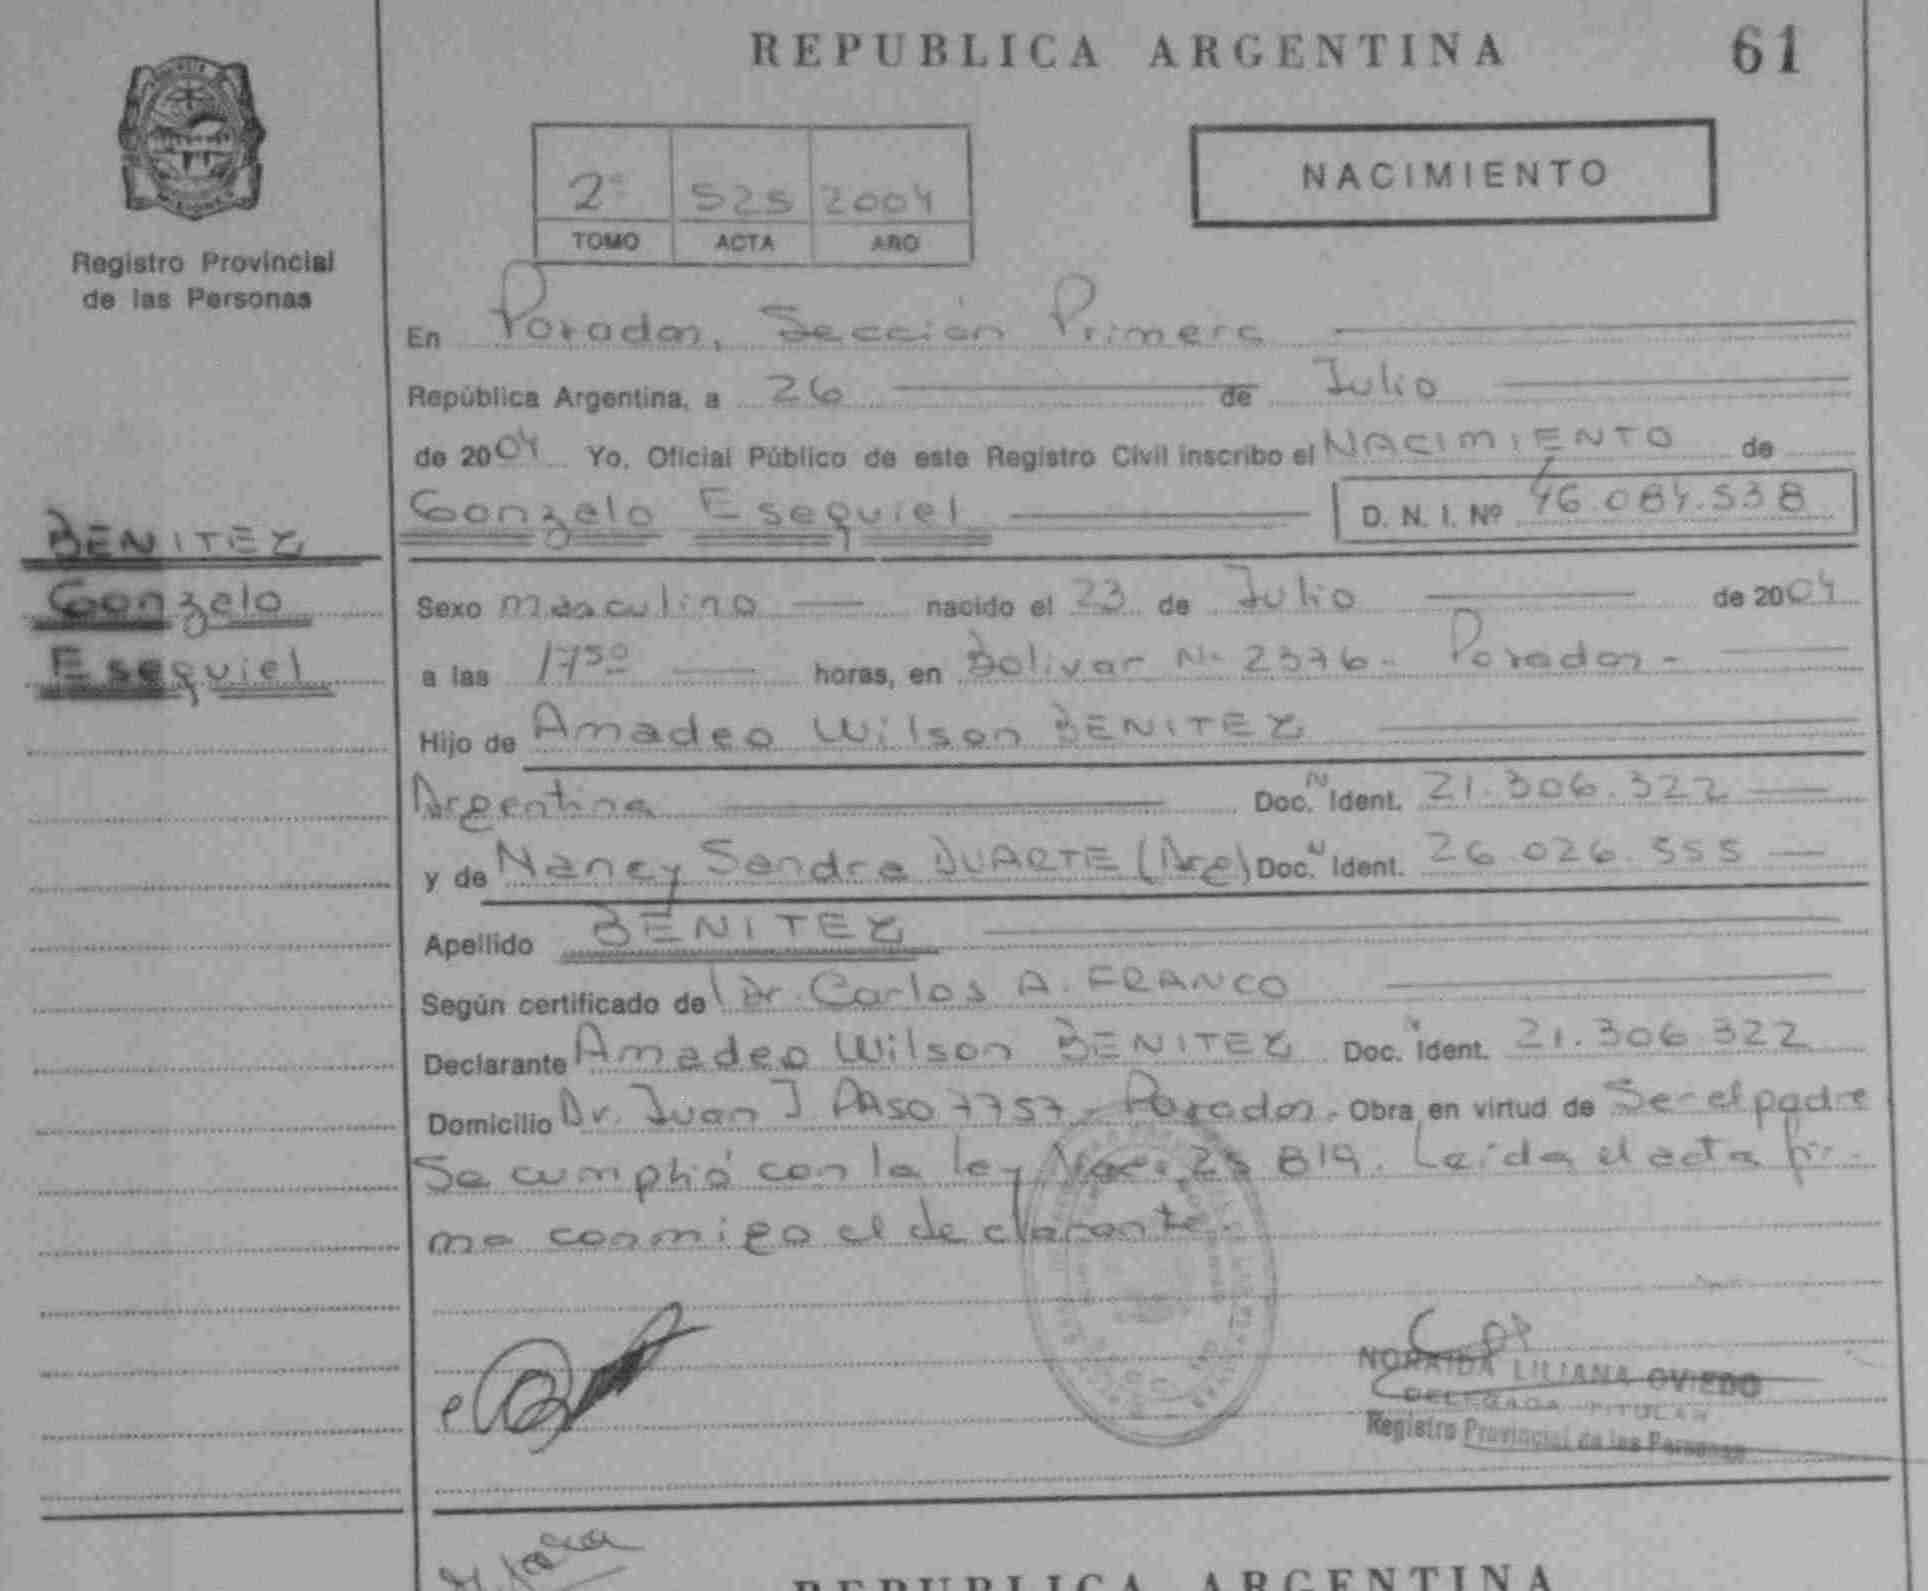 REPUBLICA ARGENTINA 61
NACIMIENTO
2º 525 2004
TOMO ACTA AÑO
Registro Provincial
de las Personas
En Posadas, Sección Primera
República Argentina, a 26 de Julio
de 2004 Yo, Oficial Público de este Registro Civil inscribo el NACIMIENTO de
Gonzalo Esequiel D. N. I. Nº 46.084.538
BENITEZ
Gonzalo
Esequiel
Sexo masculino nacido el 23 de Julio de 2004
a las 17⁵⁰ horas, en Bolivar Nº 2376 - Posadas -
Hijo de Amadeo Wilson BENITEZ
Argentina Doc. N Ident. 21.306.322
y de Nancy Sandra DUARTE (Arg) Doc. N Ident. 26.026.555
Apellido BENITEZ
Según certificado de Dr. Carlos A. FRANCO
Declarante Amadeo Wilson BENITEZ Doc. N Ident. 21.306.322
Domicilio Dr. Juan J PASO 7757 - Posadas. Obra en virtud de Ser el padre
Se cumplió con la ley Nac. 25 819. Leída el acta fir-
ma conmigo el declarante.
NORAIDA LILIANA OVIEDO
DELEGADA TITULAR
Registro Provincial de las Personas
REPUBLICA ARGENTINA